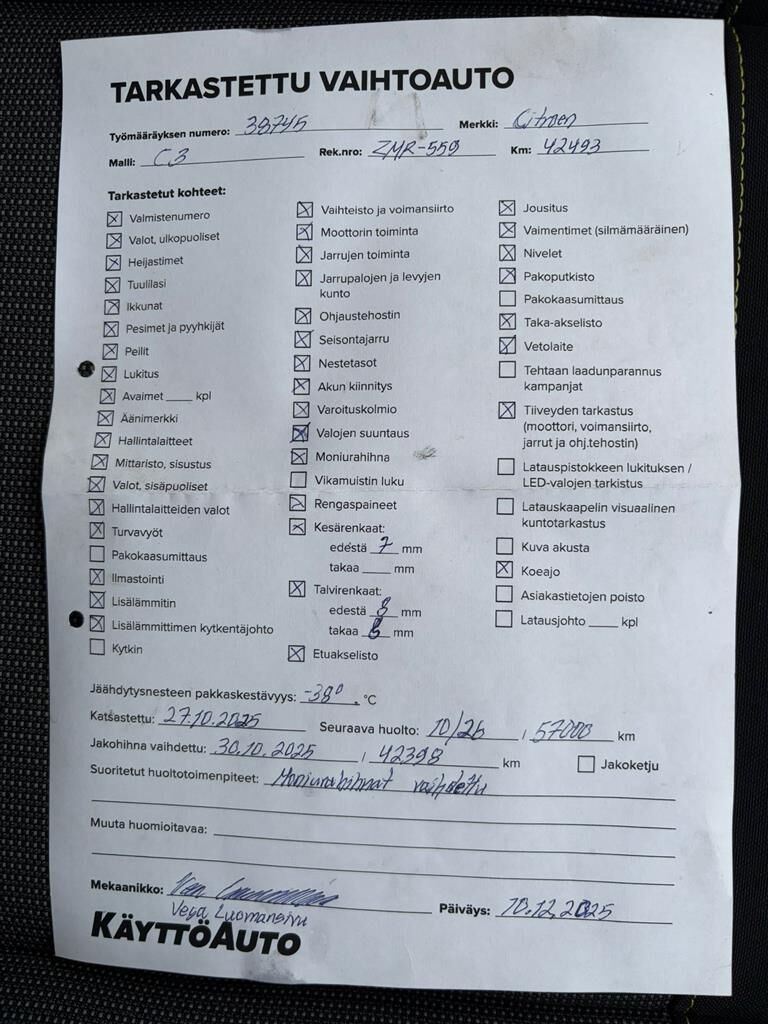 TARKASTETTU VAIHTOAUTO
Työmääräyksen numero: 38745 Merkki: Citroen
Malli: C3 Rek.nro: ZMR-559 Km: 42493
Tarkastetut kohteet:
☒ Valmistenumero
☒ Valot, ulkopuoliset
☒ Heijastimet
☒ Tuulilasi
☒ Ikkunat
☒ Pesimet ja pyyhkijät
☒ Peilit
☒ Lukitus
☒ Avaimet ____ kpl
☒ Äänimerkki
☒ Hallintalaitteet
☒ Mittaristo, sisustus
☒ Valot, sisäpuoliset
☒ Hallintalaitteiden valot
☒ Turvavyöt
☐ Pakokaasumittaus
☒ Ilmastointi
☒ Lisälämmitin
☒ Lisälämmittimen kytkentäjohto
☐ Kytkin
☒ Vaihteisto ja voimansiirto
☒ Moottorin toiminta
☒ Jarrujen toiminta
☒ Jarrupalojen ja levyjen
kunto
☒ Ohjaustehostin
☒ Seisontajarru
☒ Nestetasot
☒ Akun kiinnitys
☒ Varoituskolmio
☒ Valojen suuntaus
☒ Moniurahihna
☐ Vikamuistin luku
☒ Rengaspaineet
☒ Kesärenkaat:
edestä 7 mm
takaa ____ mm
☒ Talvirenkaat:
edestä 8 mm
takaa 8 mm
☒ Etuakselisto
☒ Jousitus
☒ Vaimentimet (silmämääräinen)
☒ Nivelet
☒ Pakoputkisto
☐ Pakokaasumittaus
☒ Taka-akselisto
☒ Vetolaite
☐ Tehtaan laadunparannus
kampanjat
☒ Tiiveyden tarkastus
(moottori, voimansiirto,
jarrut ja ohj.tehostin)
☐ Latauspistokkeen lukituksen /
LED-valojen tarkistus
☐ Latauskaapelin visuaalinen
kuntotarkastus
☐ Kuva akusta
☒ Koeajo
☐ Asiakastietojen poisto
☐ Latausjohto ____ kpl
Jäähdytysnesteen pakkaskestävyys: -38° °C
Katsastettu: 27.10.2025 Seuraava huolto: 10/26 / 57000 km
Jakohihna vaihdettu: 30.10.2025 / 42398 km ☐ Jakoketju
Suoritetut huoltotoimenpiteet: Moniurahihnat vaihdettu
Muuta huomioitavaa:
Mekaanikko:
Päiväys: 10.12.2025
KÄYTTÖAUTO